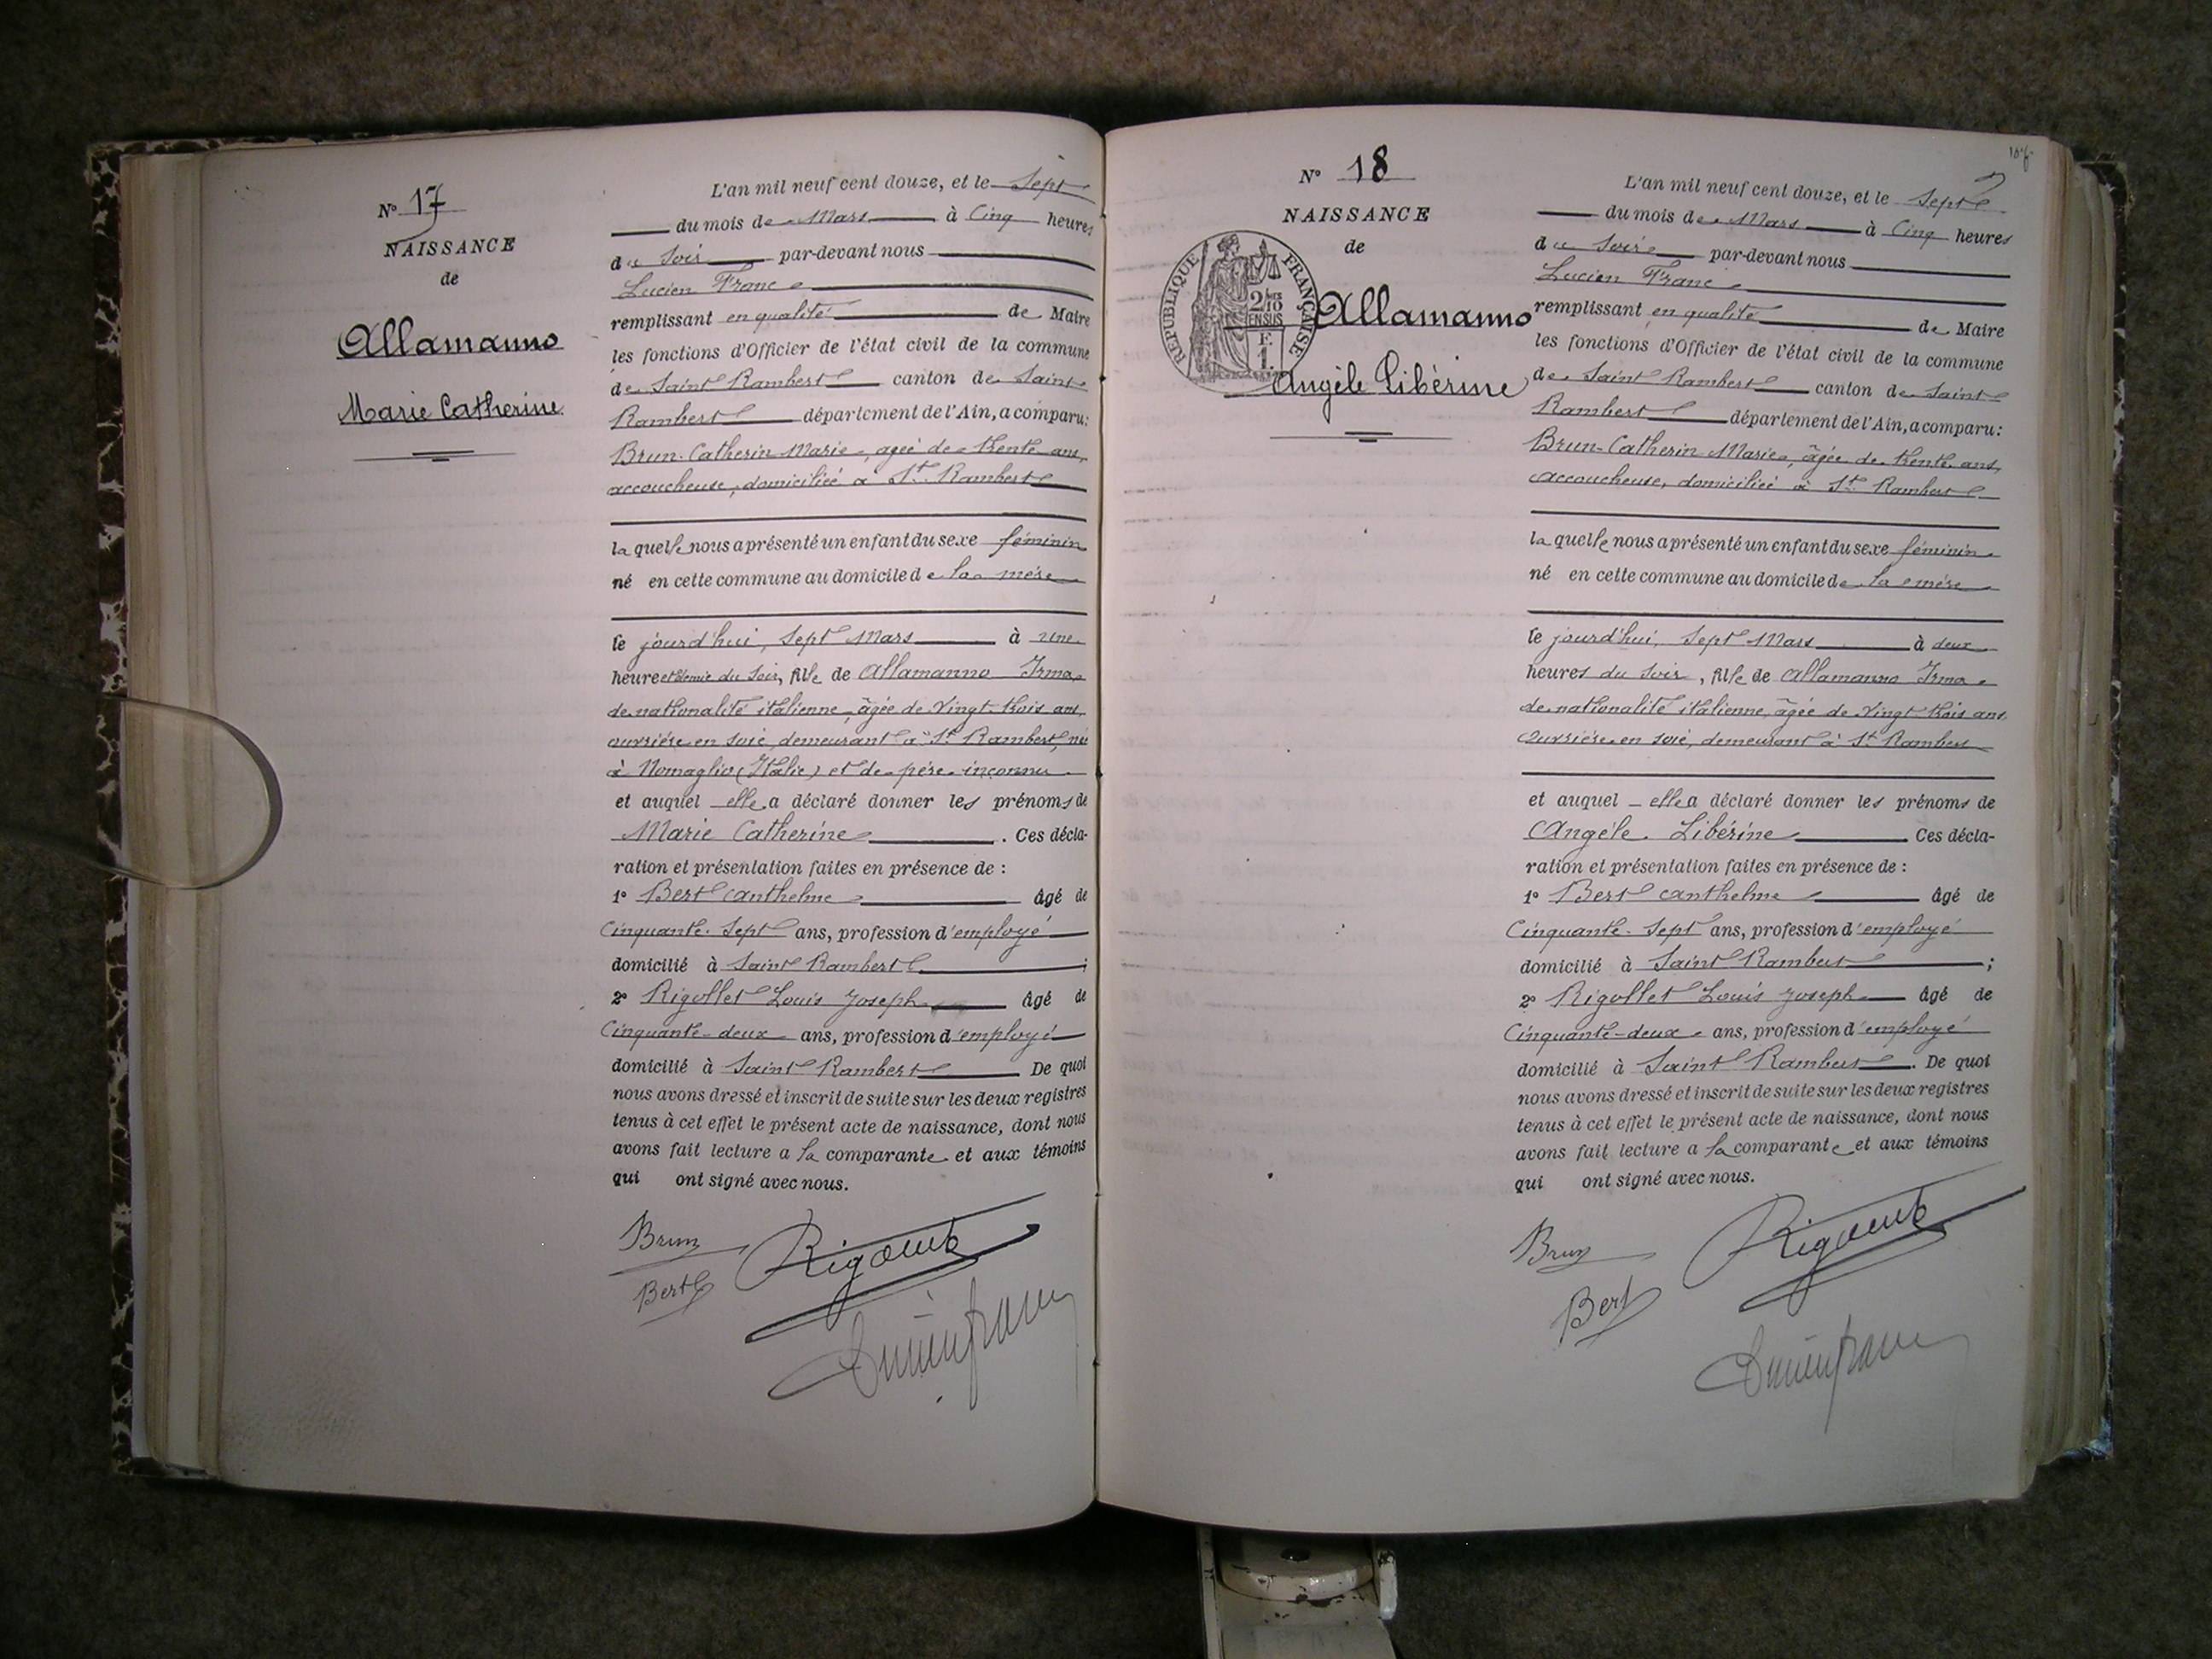 N° 17
NAISSANCE
de
Allamanno
Marie Catherine
L'an mil neuf cent douze, et le Sept
du mois de Mars à Cinq heures
du Soir par-devant nous
Lucien Franc
remplissant en qualité de Maire
les fonctions d'Officier de l'état civil de la commune
de Saint Rambert canton de Saint
Rambert département de l'Ain, a comparu:
Brun-Catherin Marie, agée de trente ans,
accoucheuse, domiciliée à St. Rambert
laquelle nous a présenté un enfant du sexe féminin
né en cette commune au domicile de la mère
le jourd'hui, Sept Mars à une
heure et demie du Soir, fille de Allamanno Irma
de nationalité italienne, âgée de Vingt-trois ans,
ouvrière en soie, demeurant à St Rambert, née
à Nomaglio (Italie) et de père inconnu
et auquel elle a déclaré donner les prénoms de
Marie Catherine. Ces décla-
ration et présentation faites en présence de :
1° Bert Anthelme âgé de
Cinquante-Sept ans, profession d'employé
domicilié à Saint Rambert ;
2° Rigollet Louis Joseph âgé de
Cinquante-deux ans, profession d'employé
domicilié à Saint Rambert De quoi
nous avons dressé et inscrit de suite sur les deux registres
tenus à cet effet le présent acte de naissance, dont nous
avons fait lecture a la comparante et aux témoins
qui ont signé avec nous.
Brun
Bert
N° 18
NAISSANCE
de
RÉPUBLIQUE FRANÇAISE
2/10
EN SUS
F.
1.
Allamanno
Angèle Libérine
L'an mil neuf cent douze, et le Sept
du mois de Mars à Cinq heures
du Soir par-devant nous
Lucien Franc
remplissant en qualité de Maire
les fonctions d'Officier de l'état civil de la commune
de Saint Rambert canton de Saint
Rambert département de l'Ain, a comparu:
Brun-Catherin Marie, âgée de trente ans,
accoucheuse, domiciliée à St. Rambert
laquelle nous a présenté un enfant du sexe féminin
né en cette commune au domicile de la mère
le jourd'hui, Sept Mars à deux
heures du Soir, fille de Allamanno Irma
de nationalité italienne, âgée de Vingt-trois ans
ouvrière en soie, demeurant à St. Rambert
et auquel elle a déclaré donner les prénoms de
Angèle Libérine Ces décla-
ration et présentation faites en présence de :
1° Bert Anthelme âgé de
Cinquante-Sept ans, profession d'employé
domicilié à Saint Rambert ;
2° Rigollet Louis Joseph âgé de
Cinquante-deux ans, profession d'employé
domicilié à Saint Rambert. De quoi
nous avons dressé et inscrit de suite sur les deux registres
tenus à cet effet le présent acte de naissance, dont nous
avons fait lecture a la comparante et aux témoins
qui ont signé avec nous.
Brun
Bert